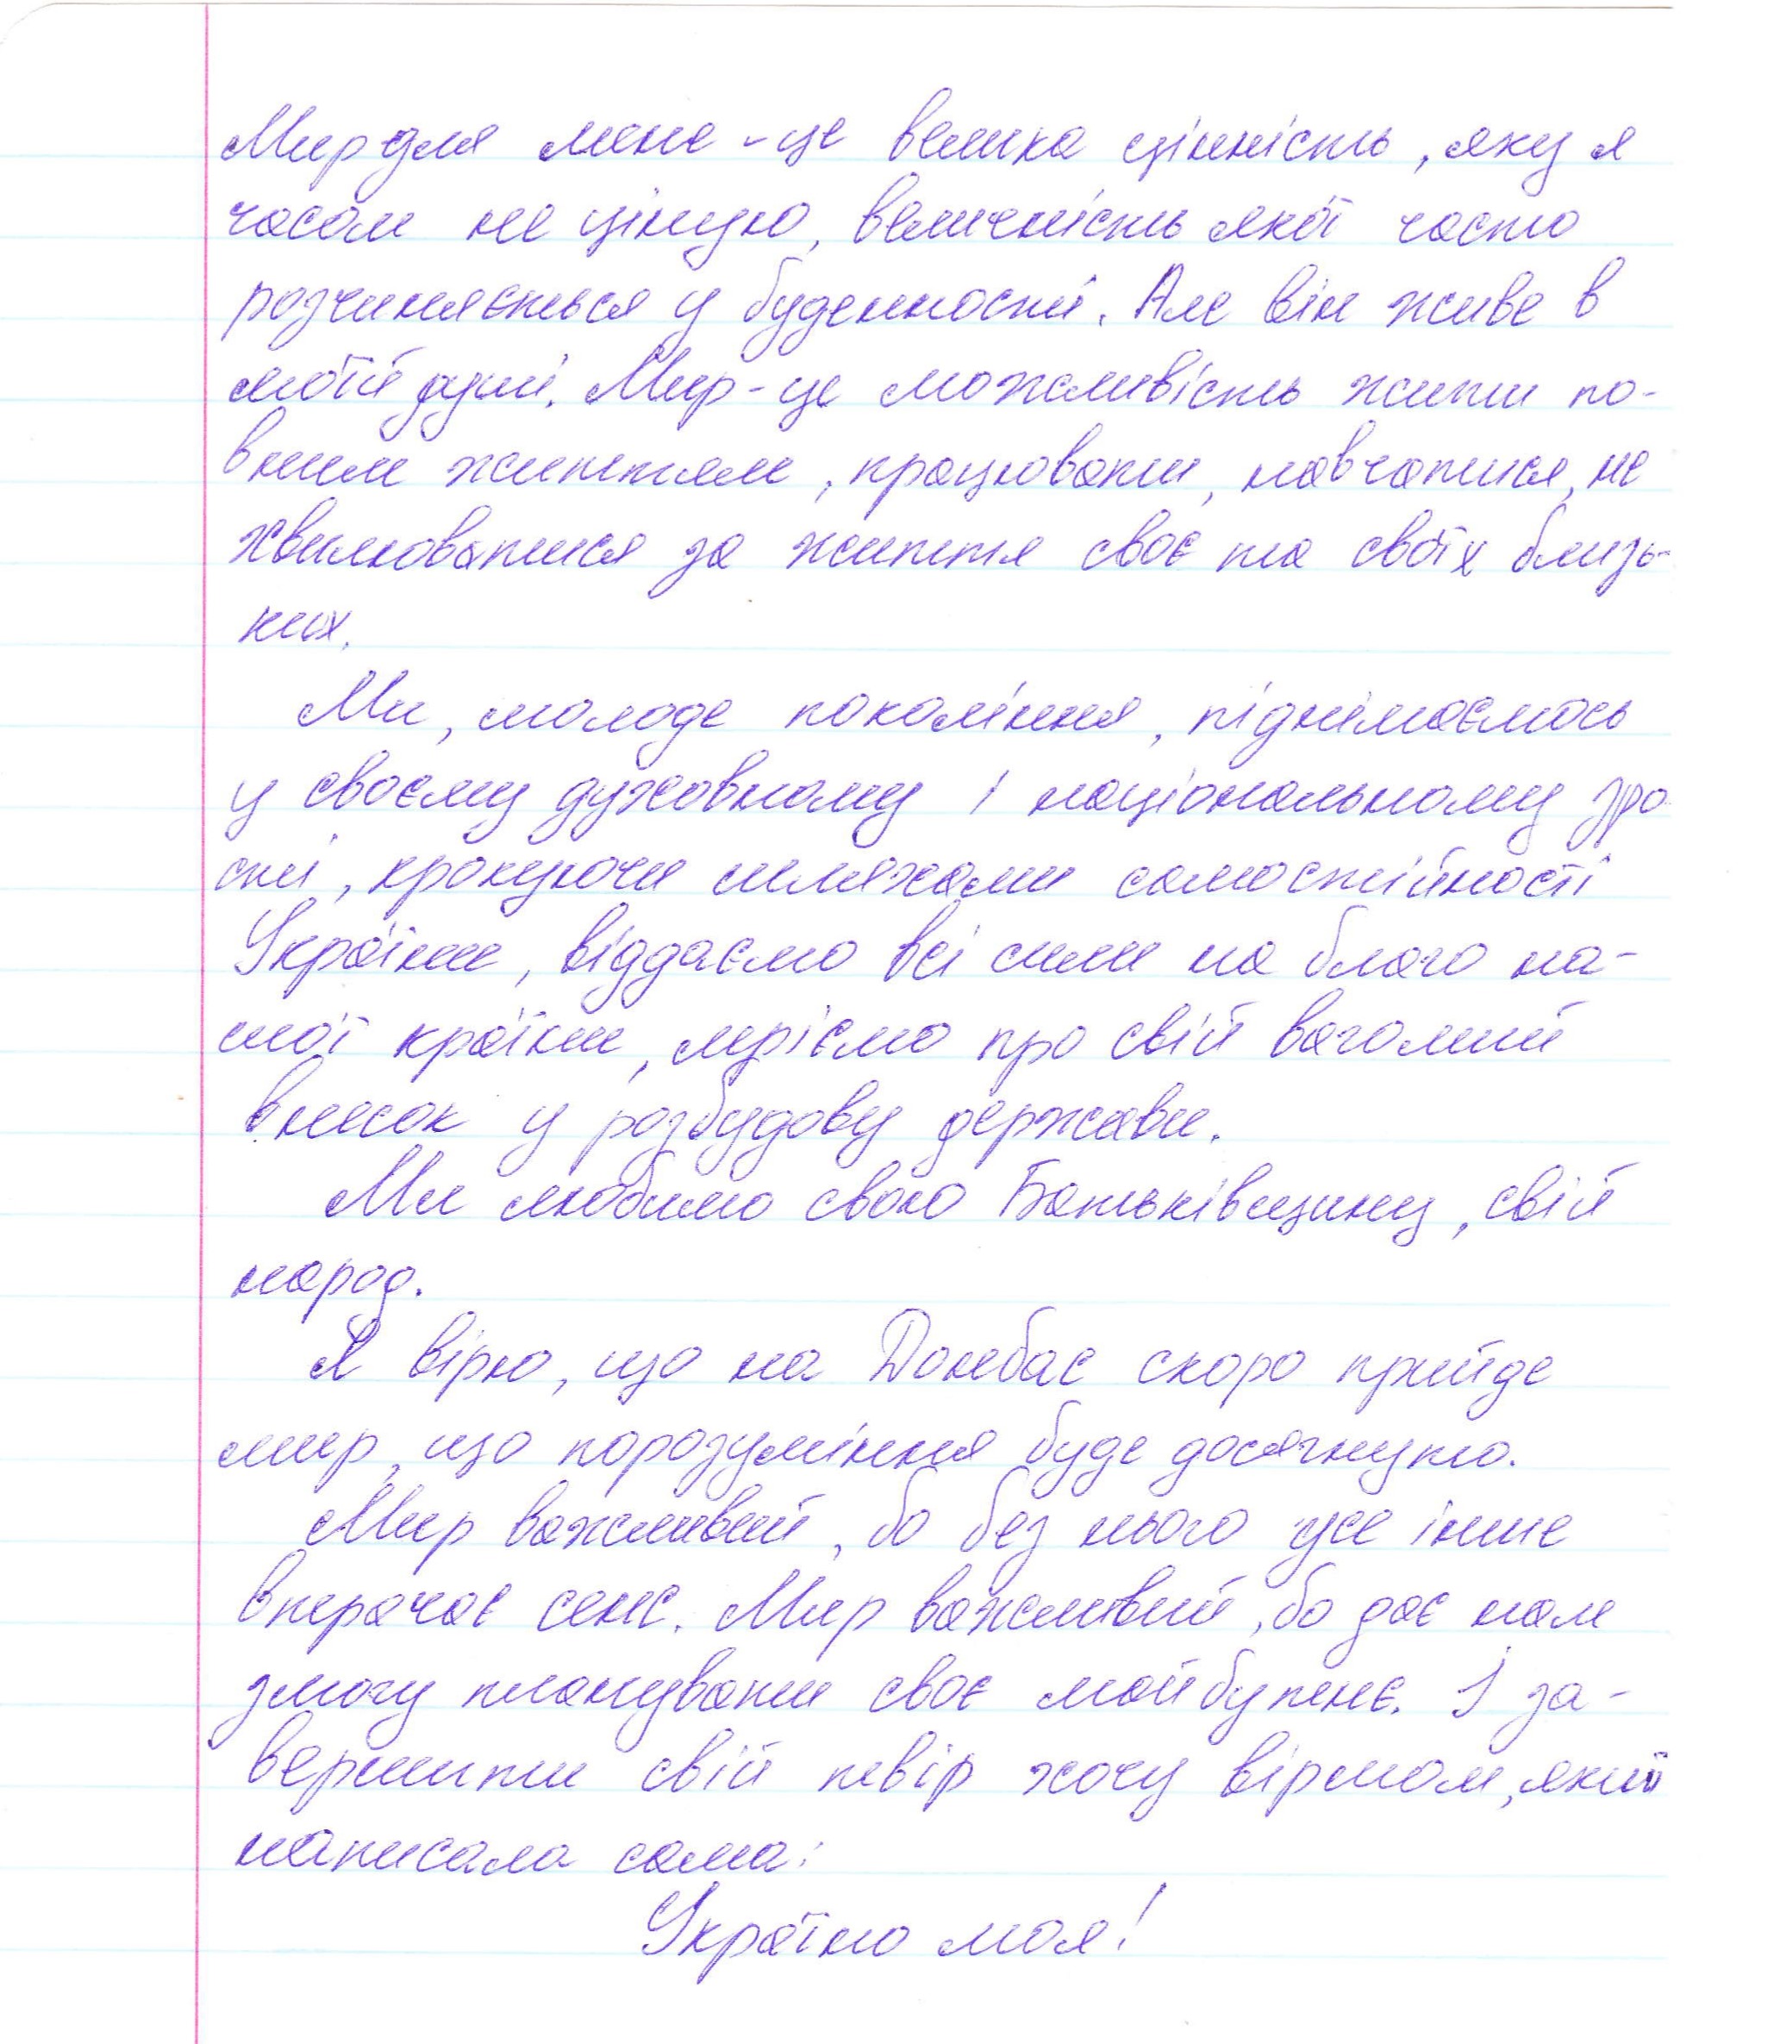 Мир для мене - це велика цінність, яку я
часом не ціную, величність якої часто
розчиняється у буденності. Але він живе в
моїй душі. Мир - це можливість жити по-
вним життям, працювати, навчатися, не
хвилюватися за життя своє та своїх близь-
ких.
Ми, молоде покоління, піднімаємось
у своєму духовному і національному зро
сті, крокуючи шляхами самостійності
України, віддаємо всі сили на благо на-
шої країни, мріємо про свій вагомий
внесок у розбудову держави.
Ми любимо свою Батьківщину, свій
народ.
Я вірю, що на Донбас скоро прийде
мир, що порозуміння буде досягнуто.
Мир важливий, бо без нього усе інше
втрачає сенс. Мир важливий, бо дає нам
змогу планувати своє майбутнє. І за-
вершити свій твір хочу віршом, який
написала сама:
Україно моя!